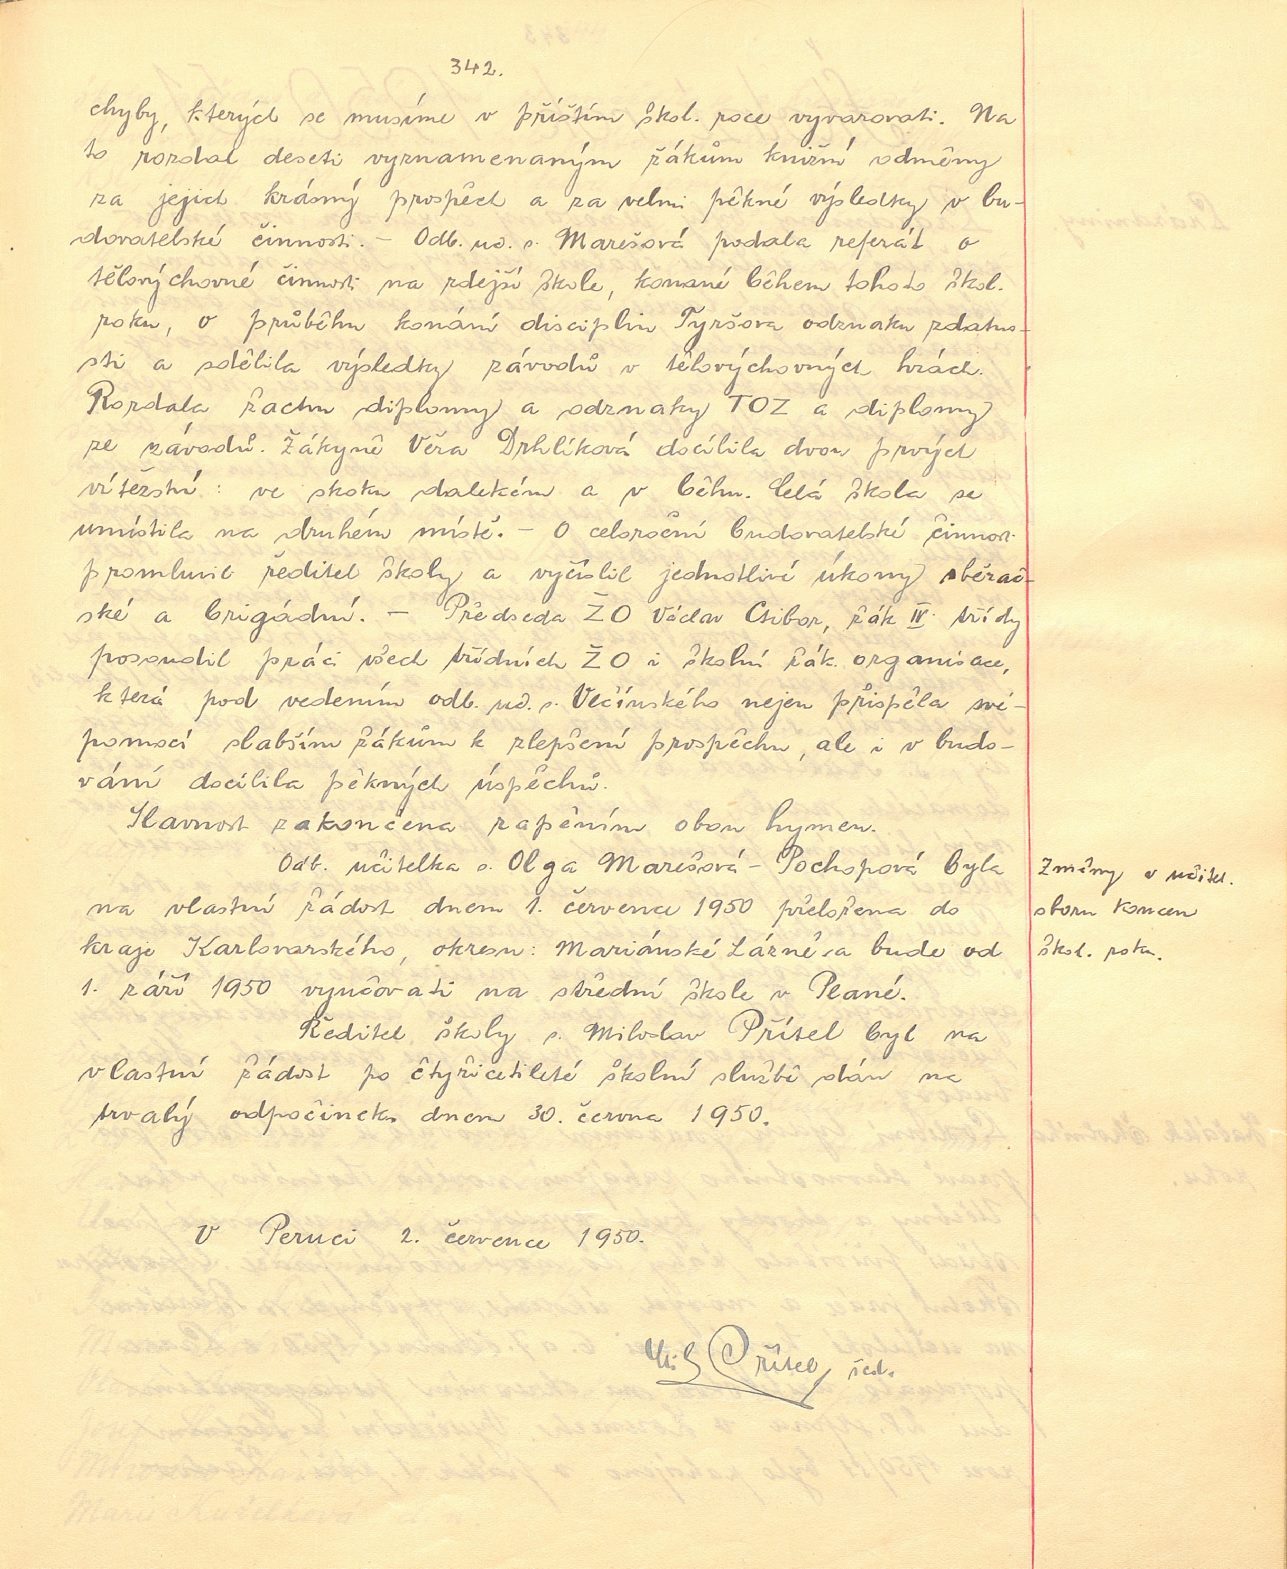 342.
chyby, kterých se musíme v příštím škol. roce vyvarovati. Na
to rozdal deseti vyznamenaným žákům knižní odměny
za jejich krásný prospěch a za velmi pěkné výsledky v bu-
dovatelské činnosti. – Odb. uč. s. Marešová podala referát o
tělovýchovné činnosti na zdejší škole, konané během tohoto škol.
roku, o průběhu konání disciplin Tyršova odznaku zdatno-
sti a sdělila výsledky závodů v tělovýchovných hrách.
Rozdala žactvu diplomy a odznaky TOZ a diplomy
ze závodů. Žákyně Věra Drhlíková docílila dvou prvých
vítězství: ve skoku dalekém a v běhu. Celá škola se
umístila na druhém místě. – O celoroční budovatelské činnosti
promluvil ředitel školy a vyčíslil jednotlivé úkony sběrač-
ské a brigádní. – Předseda ŽO Václav Ctibor, žák IV. třídy
posoudil práci všech třídních ŽO i školní žák. organisace,
která pod vedením odb. uč. s. Večínského nejen přispěla své-
pomocí slabším žákům k zlepšení prospěchu, ale i v budo-
vání docílila pěkných úspěchů.
Slavnost zakončena zapěním obou hymen.
Odb. učitelka s. Olga Marešová – Pochopová byla
na vlastní žádost dnem 1. července 1950 přeložena do
kraje Karlovarského, okresu: Mariánské Lázně a bude od
1. září 1950 vyučovati na střední škole v Plané.
Ředitel školy s. Miloslav Přítel byl na
vlastní žádost po čtyřicetileté školní službě dán na
trvalý odpočinek dnem 30. června 1950.
Změny v učitel.
sboru koncem
škol. roku.
V Peruci 2. července 1950.
Mil. Přítel, řed.